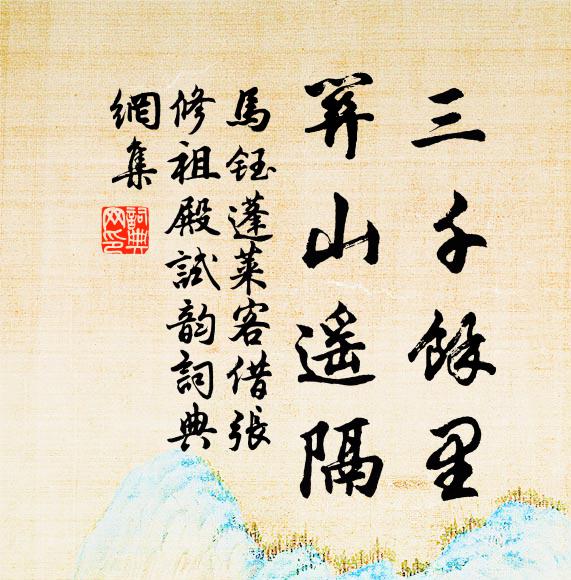 三千餘里
笄山遙隔
馬鈺蓬萊客借張
修祖殿試韵詞典
網集
詞典
网印